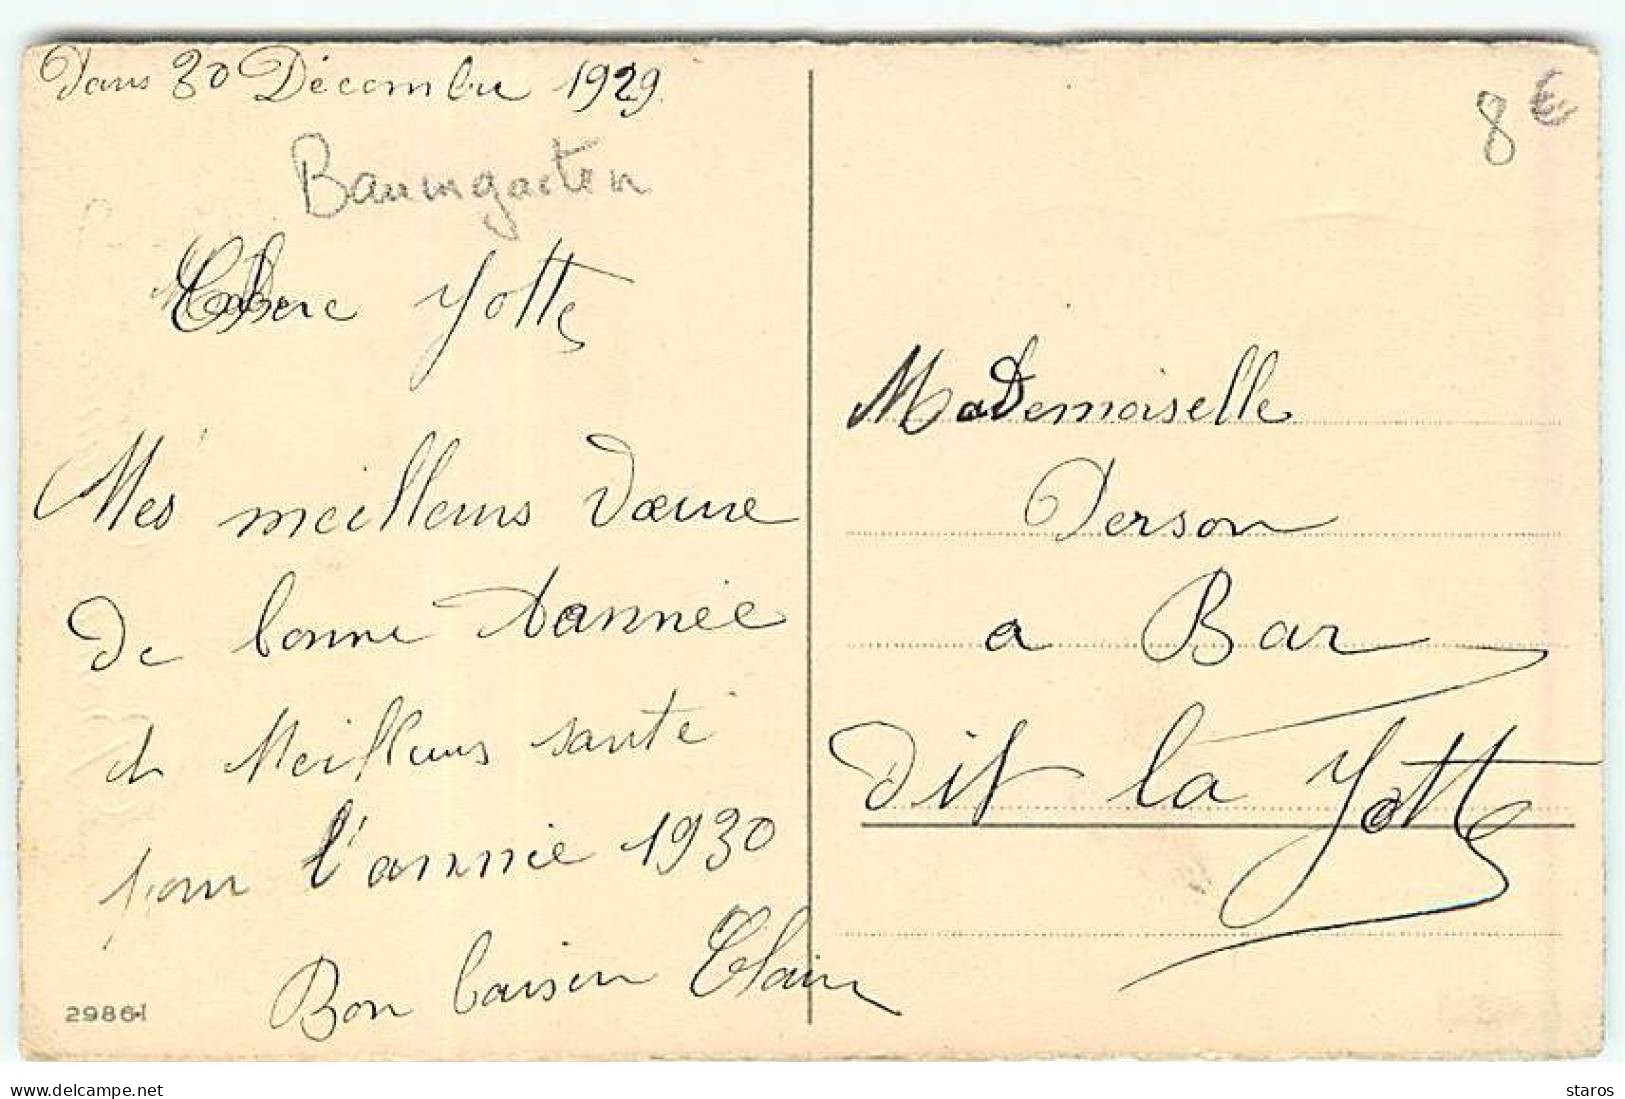 30 Décembre 1929
Baumgarten
Chère Yotte
Mes meilleurs
de bonne année
et Meilleurs santé
pour l'année 1930
Bon baiser Clair
2986-I
8 €
MaDemoiselle
Person
a Bar
dit la Yotte
www.delcampe.net
staros